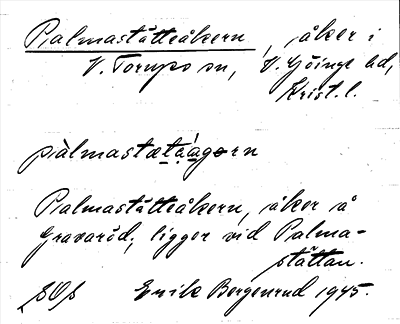 Palmastätteåkern, åker i
V. Torups sn, V. Göinge hd,
Krist. l.
pàlmastætaágorn
Palmastätteåkern, åker å
Gravaröd, ligger vid Palma-
stättan.
Erik Bergenrud 1945.